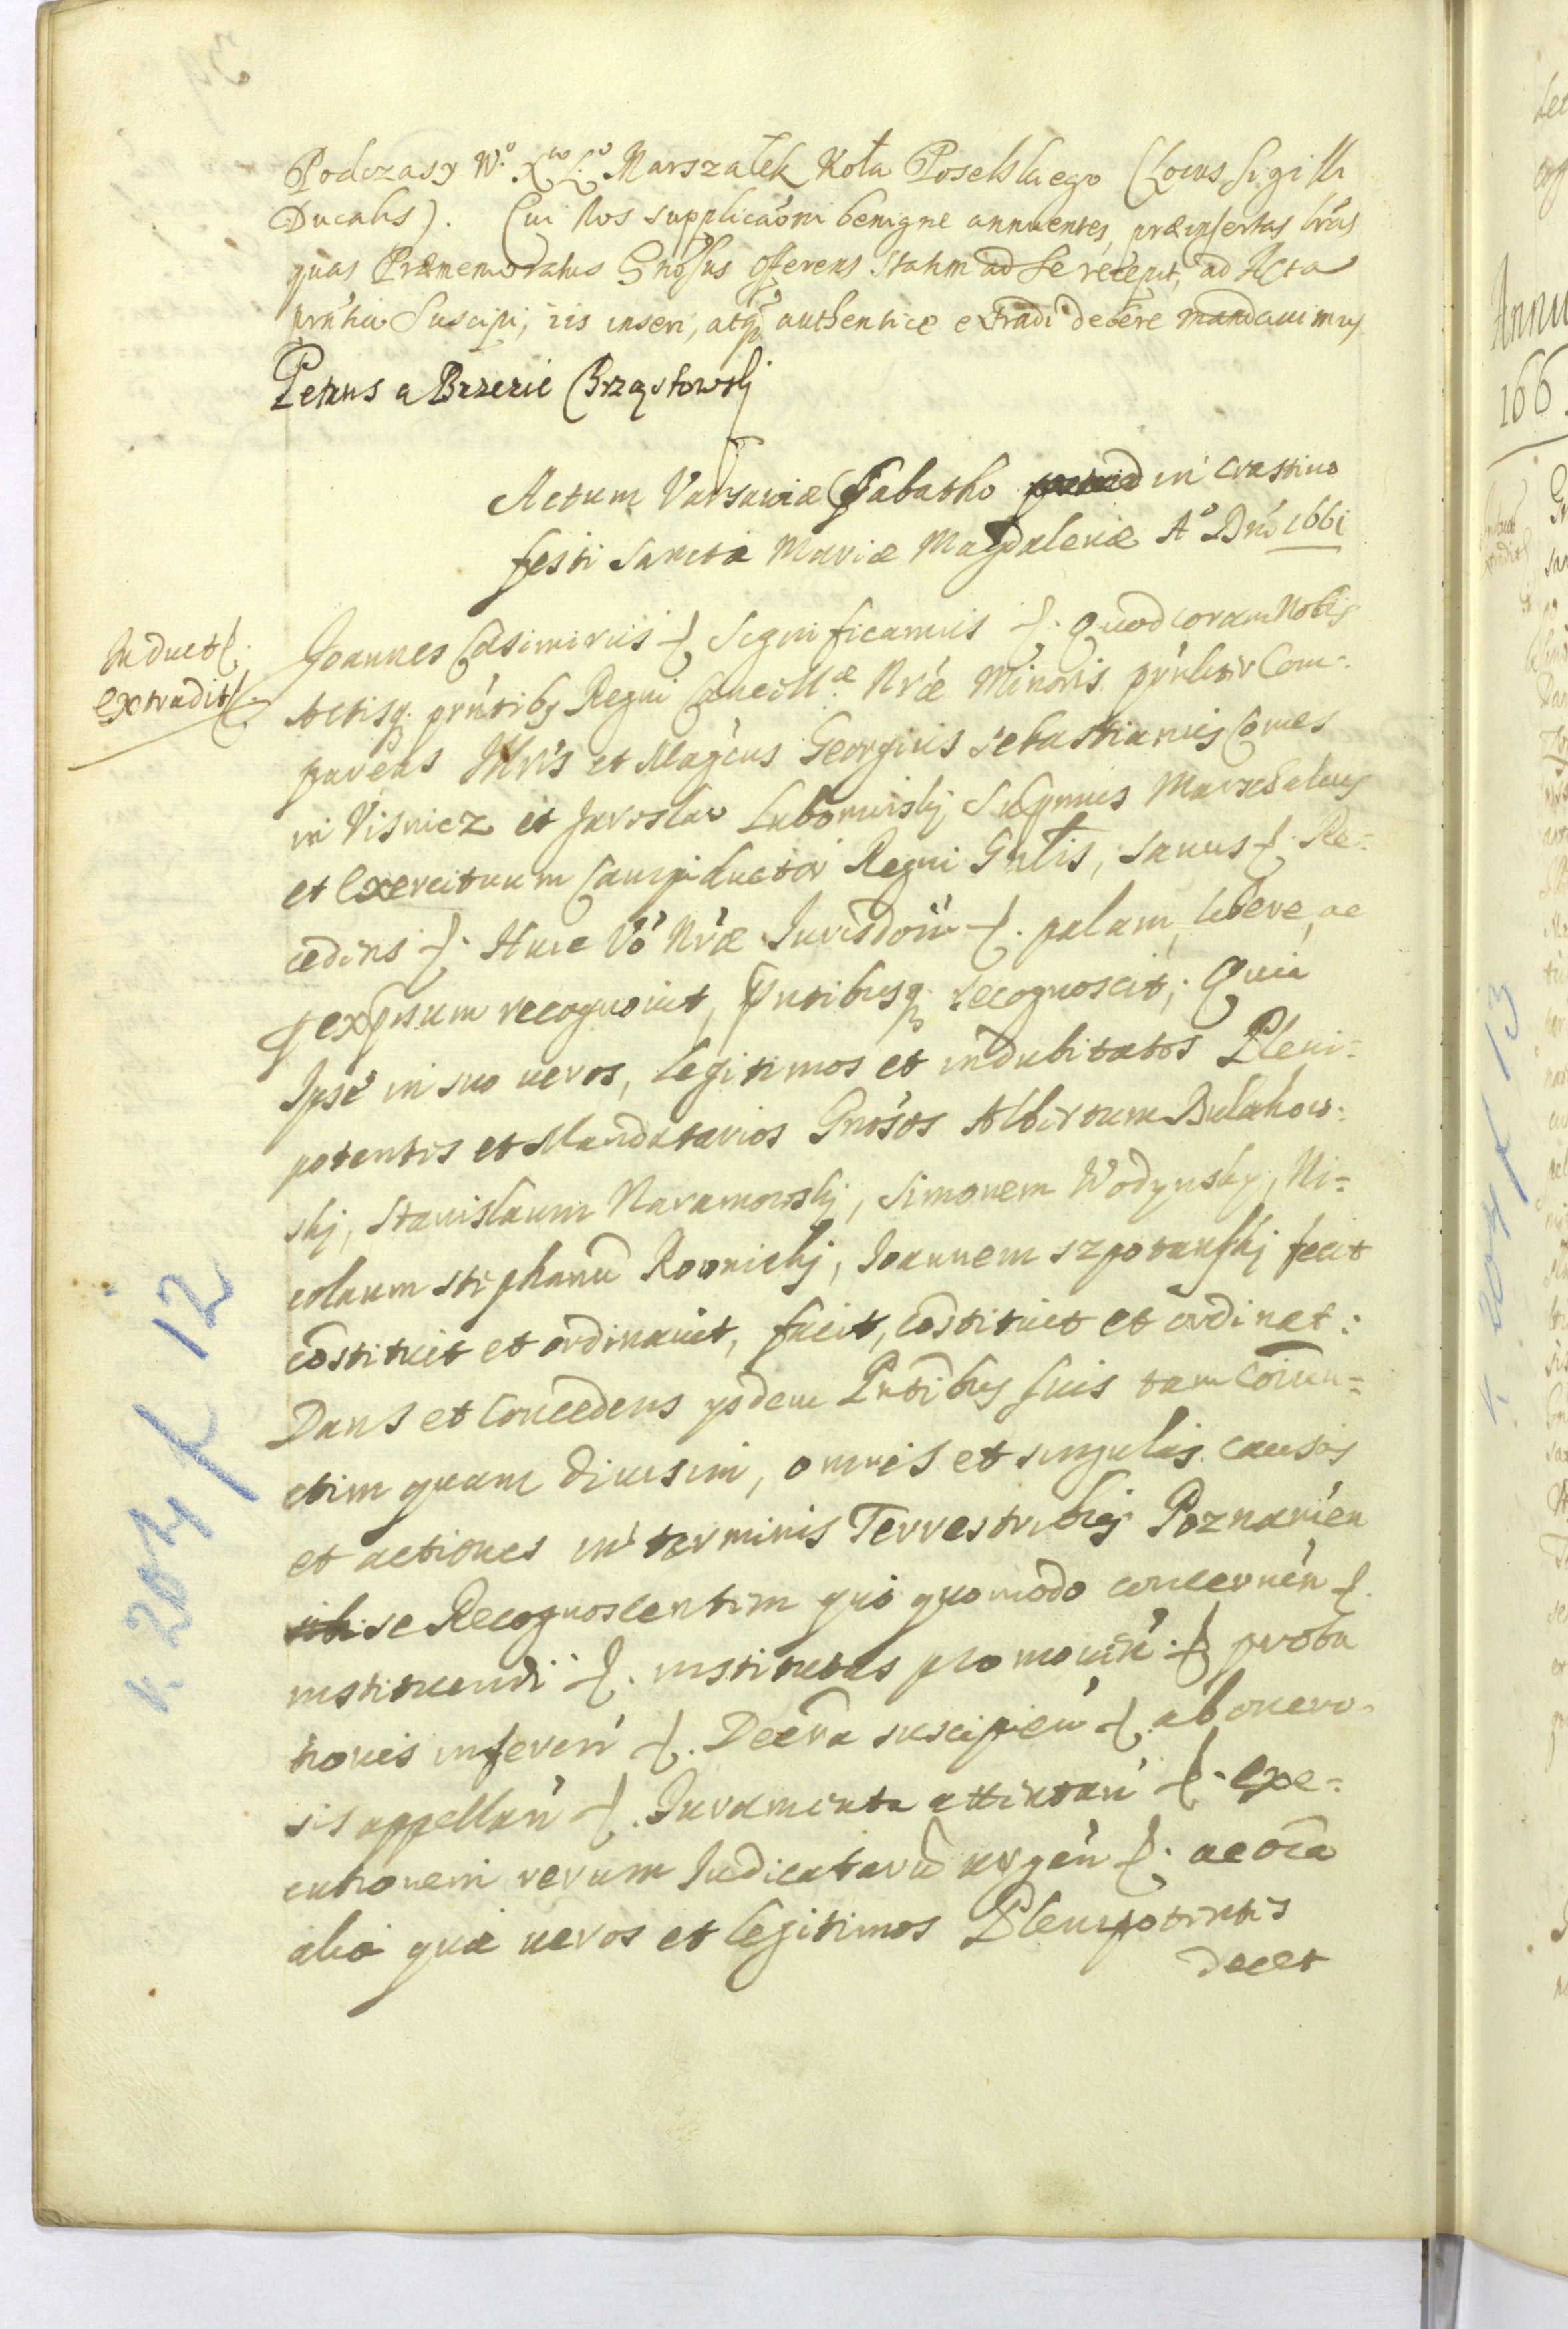 Podczaszy W.º Xᵂᵒ L.º Marszałek Koła Poselskiego (Locus Sigilli
Ducalis). Cui Nos supplicaóni benigne annuentes, præinsertas lras
quas Præmemoratus Gnosus offerens statim ad se recepit, ad Acta
prntia Suscipi, iis inseri, atq₃ authentice extradi debere mandauimus
Petrus a Brzezie Brzostowskj
Actum Varsauiæ Sabatho in Crastino
festi Sanctæ Mariæ Magdalenæ Aº Dni 1661
Induct.
extradit.
Joannes Casimirus Significamus Quod coram Nobis
Actisq. prntibs Regni Cancellᵃᵉ Nræ Minoris prnliter Com-
parens Illris et Magcus Georgius Sebastianus Comes
in Visnicz et Jaroslaw Lubomirskj Supmus Marschalcus
et Exercituum Campiductor Regni Gnlis, sanus Re-
cedens Huic Vo Nræ Jurisdoni palam, libere, ac
p expssum recognouit, Pntibusq₃ recognoscit; Quia
Ipse in suo veros, legitimos et indubitatos Pleni-
potentes et Mandatarios Gnosos Albertum Bulakow-
skj, Stanislaum Naramowskj, Simonem Wodynsky, Ni-
colaum Stephanu Rovnickj, Joannem Szpotanskj fecit
costituit et ordinauit, facit, costituit et ordinat:
Dans et Concedens ysdem Pntibus suis tam Coniun-
ctim quam diuisim, omnes et singulas causas
et actiones in terminis Terrestribus Poznanien
se Recognoscentem quo quomodo concernen
instituendi institutas promouen proba
tiones inferen Decreta suscipien ab onero-
sis appellan Juramenta attentan exe-
cutionem rerum Judicataru urgen ac oia
alia quæ veros et legitimos Plenipotentes
decet
k. 204 f 12
Annu
166
k. 204 f 13